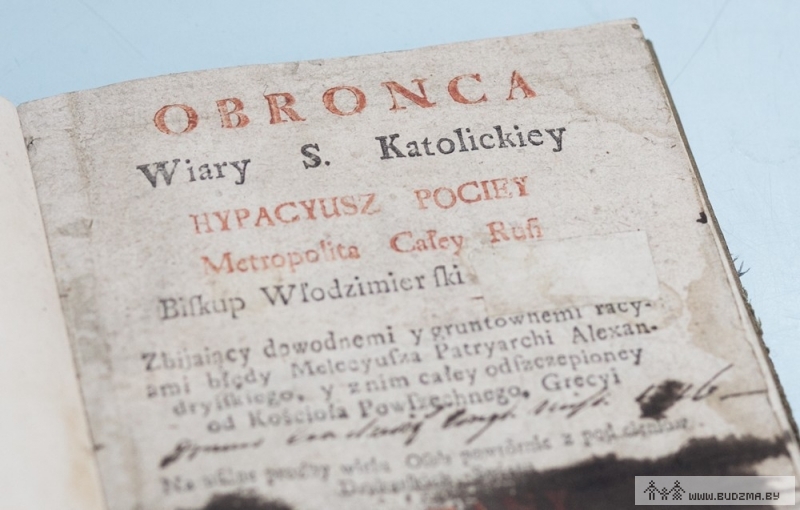 OBRONCA
Wiary S. Katolickiey
HYPACYUSZ POCIEY
Metropolita Całey Ruſi
Biſkup Włodzimierſki
Zbijaiący dowodnemi y gruntownemi racy-
ami błędy Melecyusza Patryarchi Alexan-
dryſkiego, y z nim całey odſzczepioney
od Kościoła Powſzechnego, Grecyi
Na uſilne proźby wielu Osób powtórnie z pod
WWW.BUDZMA.BY